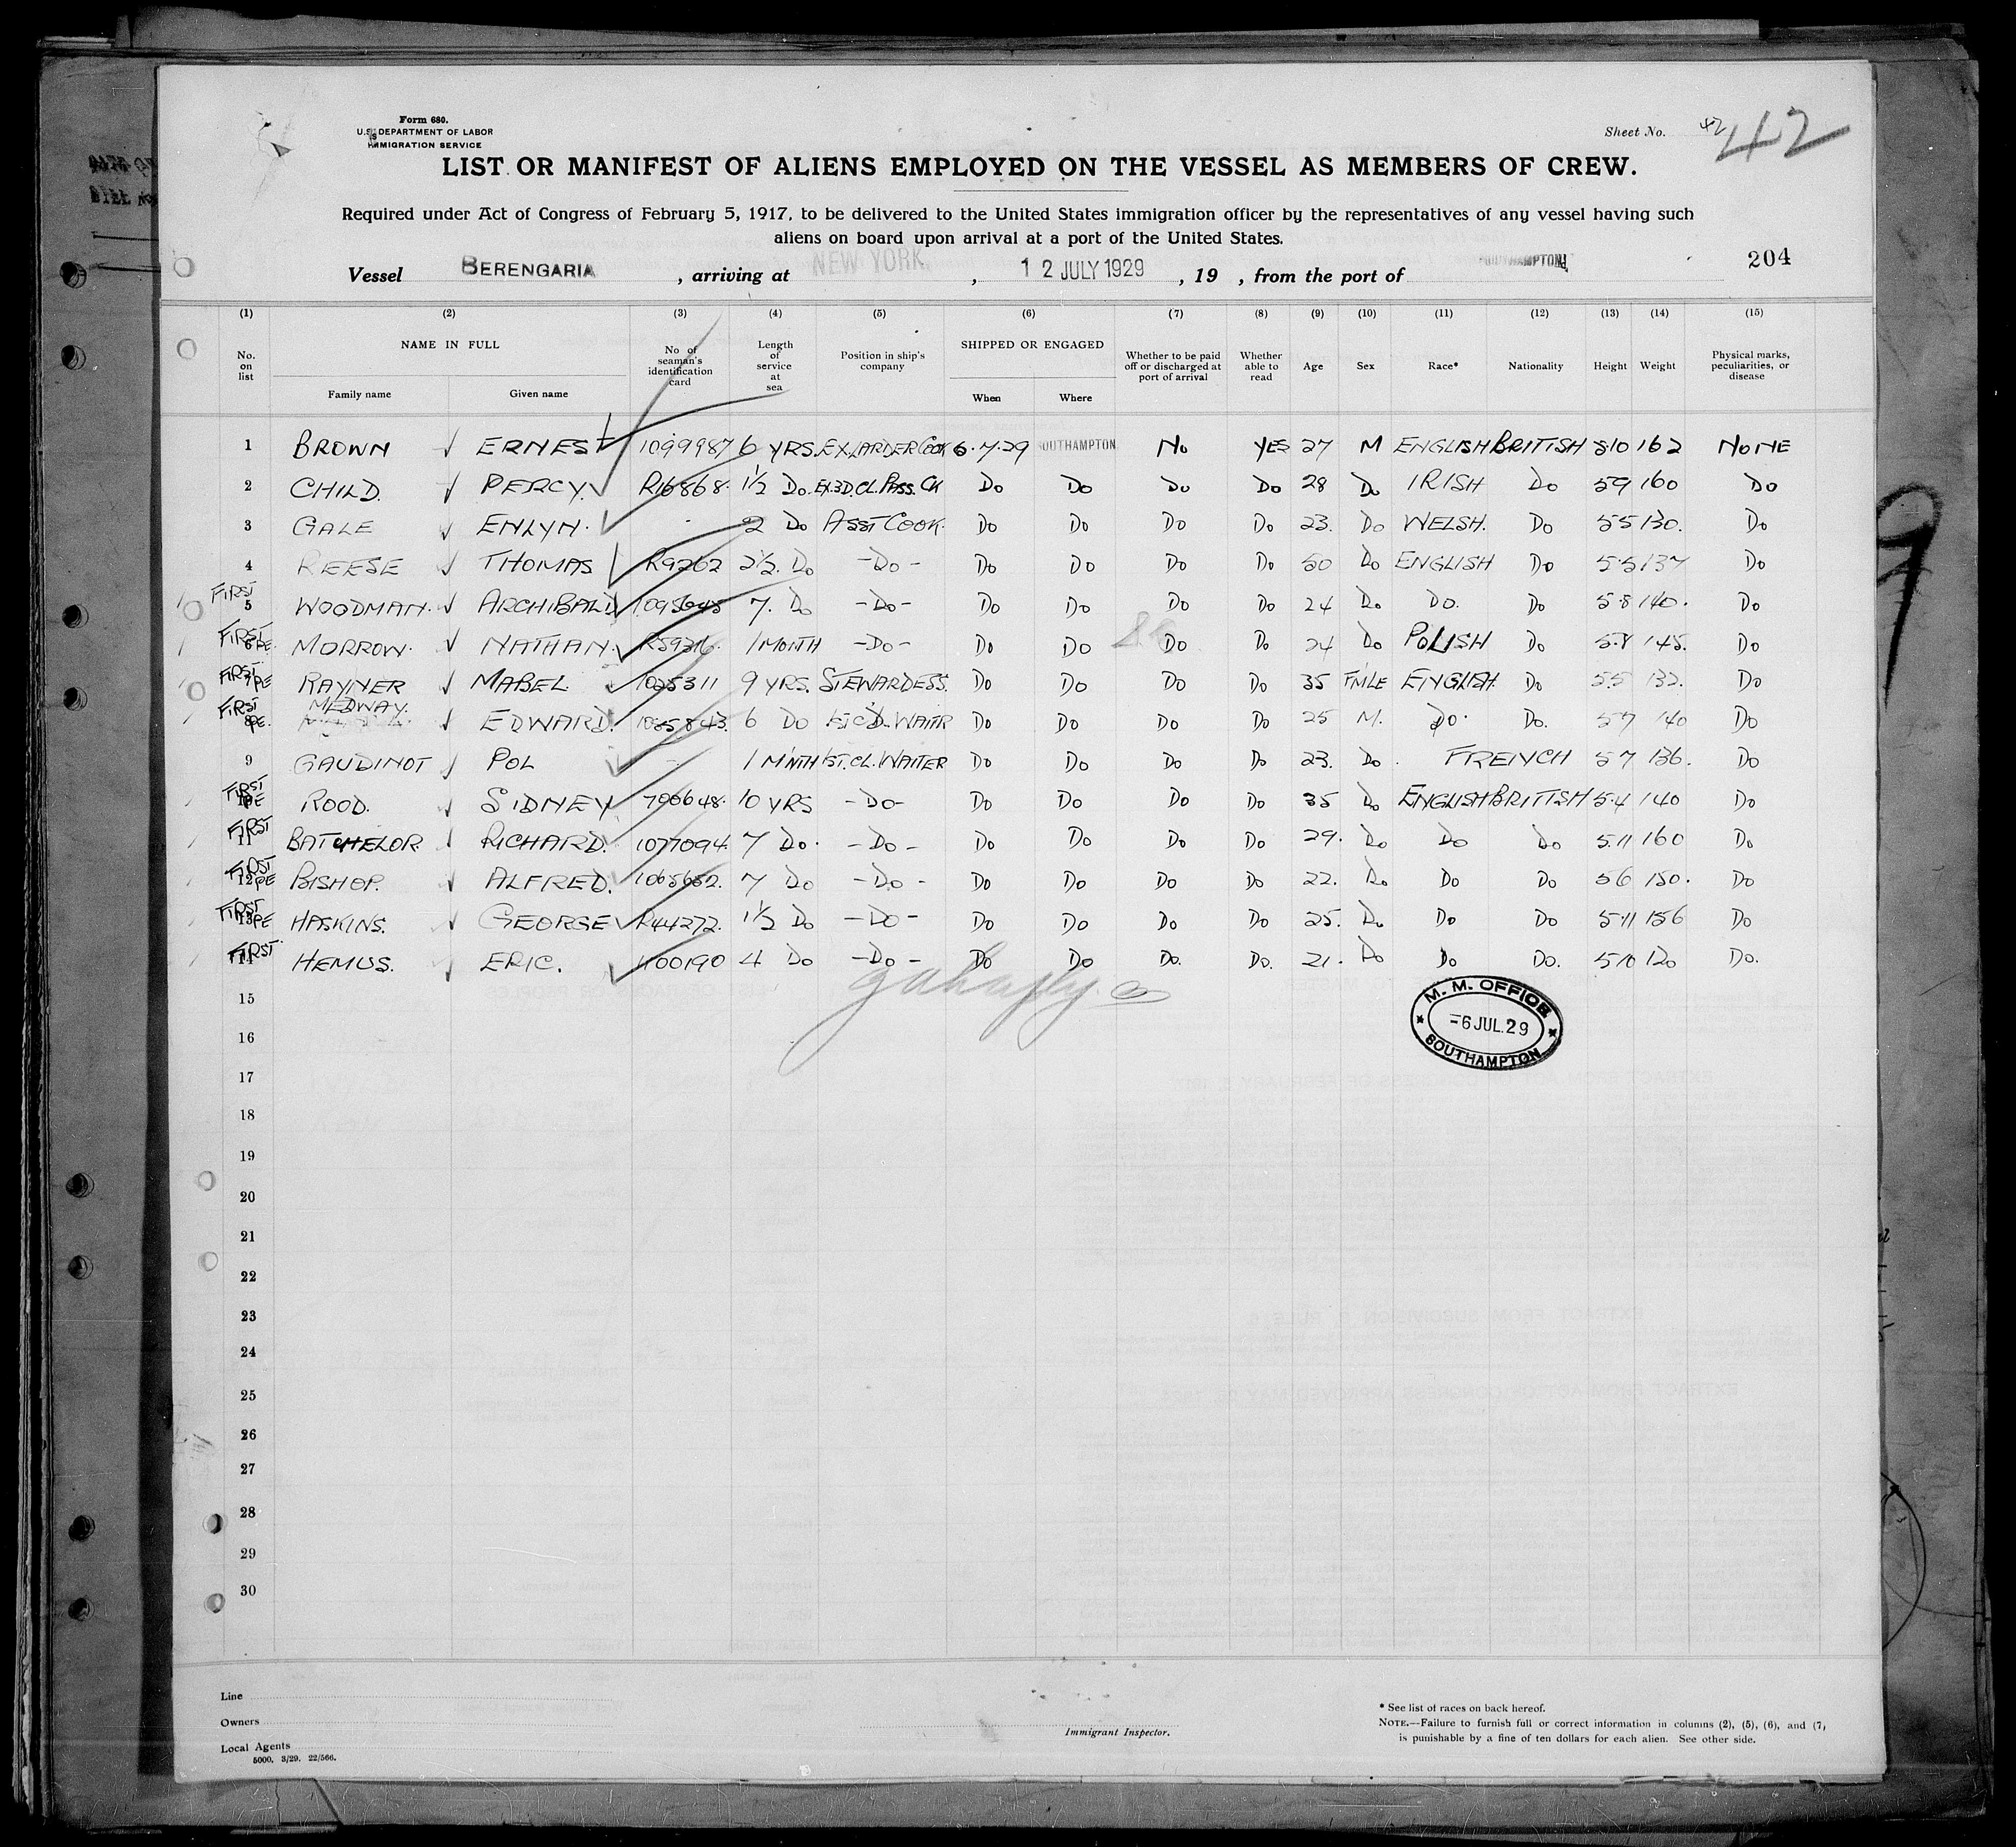 Form 680.
U.S. DEPARTMENT OF LABOR
IMMIGRATION SERVICE
Sheet No. 42 42
LIST OR MANIFEST OF ALIENS EMPLOYED ON THE VESSEL AS MEMBERS OF CREW.
Required under Act of Congress of February 5, 1917, to be delivered to the United States immigration officer by the representatives of any vessel having such
aliens on board upon arrival at a port of the United States.
204
Vessel BERENGARIA , arriving at NEW YORK. , 12 JULY 1929 , 19 , from the port of SOUTHAMPTON
(1) (2) (3) (4) (5) (6) (7) (8) (9) (10) (11) (12) (13) (14) (15)
No. on list NAME IN FULL Family name Given name No of seaman's identification card Length of service at sea Position in ship's company SHIPPED OR ENGAGED When Where Whether to be paid off or discharged at port of arrival Whether able to read Age Sex Race* Nationality Height Weight Physical marks, peculiarities, or disease
1 BROWN ERNEST 1099987 6 YRS. EX.LARDER COOK 6.7.29 SOUTHAMPTON No YES 27 M ENGLISH BRITISH 5.10 162 NONE
2 CHILD. PERCY. R16868. 1½ Do. EX.3D.CL.PASS.CK Do Do Do Do 28 Do IRISH Do 59 160 Do
3 GALE ENLYN. - 2 Do ASST COOK. Do Do Do Do 23. Do WELSH. Do 55 130. Do
4 REESE THOMAS R9262 2½. Do -Do- Do Do Do Do 50 Do ENGLISH Do 5.5 137 Do
FIRST 5 WOODMAN. ARCHIBALD 1095645 7. Do -Do- Do Do Do Do 24 Do Do. Do 5.8 140. Do
FIRST 6 PE. MORROW. NATHAN. R59316. 1 MONTH -Do- Do Do Do Do 24 Do POLISH Do 5.8 145. Do
FIRST 7 PE RAYNER MABEL 1025311 9 YRS. STEWARDESS. Do Do Do Do 35 FMLE ENGLISH. Do 5.5 132. Do
FIRST 8 PE. MEDWAY. EDWARD. 1085843. 6 Do WAITR Do Do Do Do 25 M. Do. Do. 57 140 Do
9 GAUDINOT POL - 1 MNTH 1ST.CL.WAITER Do Do Do Do 23. Do. FRENCH 57 136. Do
FIRST 10 PE ROOD. SIDNEY 700648. 10 YRS -Do- Do Do Do Do 35 Do ENGLISH BRITISH 5.4 140 Do
FIRST 11 BATCHELOR RICHARD. 1077094. 7 Do. -Do- Do Do Do Do 29. Do Do Do 5.11 160 Do
FIRST 12 PE BISHOP. ALFRED. 1065652. 7 Do -Do- Do Do Do Do 22. Do Do Do 56 150. Do
FIRST 13 PE HASKINS. GEORGE R44272. 1½ Do -Do- Do Do Do Do 25. Do Do Do 5.11 156 Do
FIRST 14 HEMUS. ERIC. 1100190 4 Do -Do- Do Do Do. Do. 21. Do Do Do. 5.10 120 Do.
15
M. M. OFFICE
-6 JUL. 29
SOUTHAMPTON
16
17
18
19
20
21
22
23
24
25
26
27
28
29
30
Line
Owners
Local Agents
5000. 3/29. 22/566.
Immigrant Inspector.
* See list of races on back hereof.
NOTE.—Failure to furnish full or correct information in columns (2), (5), (6), and (7,
is punishable by a fine of ten dollars for each alien. See other side.